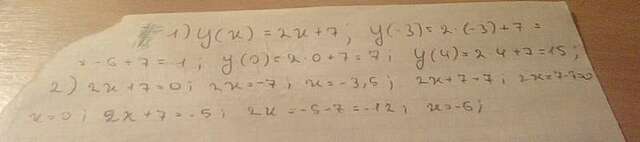 1) y(x) = 2x + 7; y(-3) = 2·(-3) + 7 =
= -6 + 7 = 1; y(0) = 2·0 + 7 = 7; y(4) = 2·4 + 7 = 15;
2) 2x + 7 = 0; 2x = -7; x = -3,5; 2x + 7 = 7; 2x = 7-7=0
x = 0; 2x + 7 = -5; 2x = -5 - 7 = -12; x = -6;